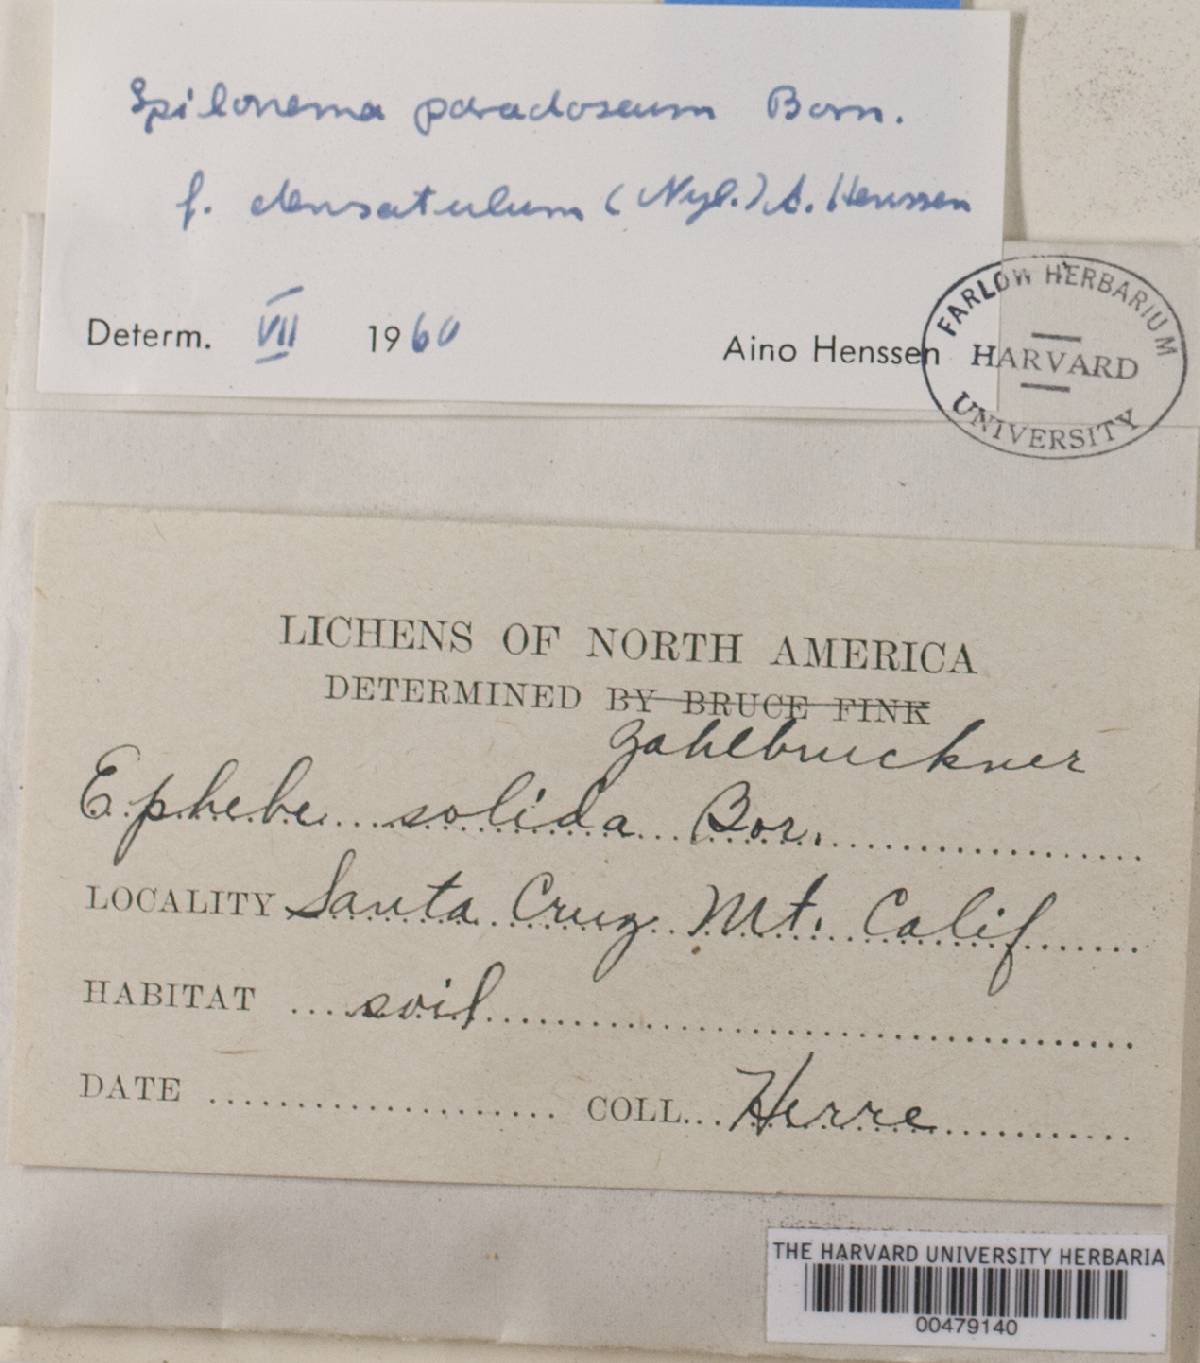 Spilonema paradoxum Born.
f. densatulum (Nyl.) A. Henssen
Determ. VII 1960 Aino Henssen
FARLOW HERBARIUM
HARVARD
UNIVERSITY
LICHENS OF NORTH AMERICA
DETERMINED BY BRUCE FINK
Zahlbruckner
Ephebe solida Bor.
LOCALITY Santa Cruz Mt. Calif
HABITAT soil
DATE COLL. Herre
THE HARVARD UNIVERSITY HERBARIA
00479140